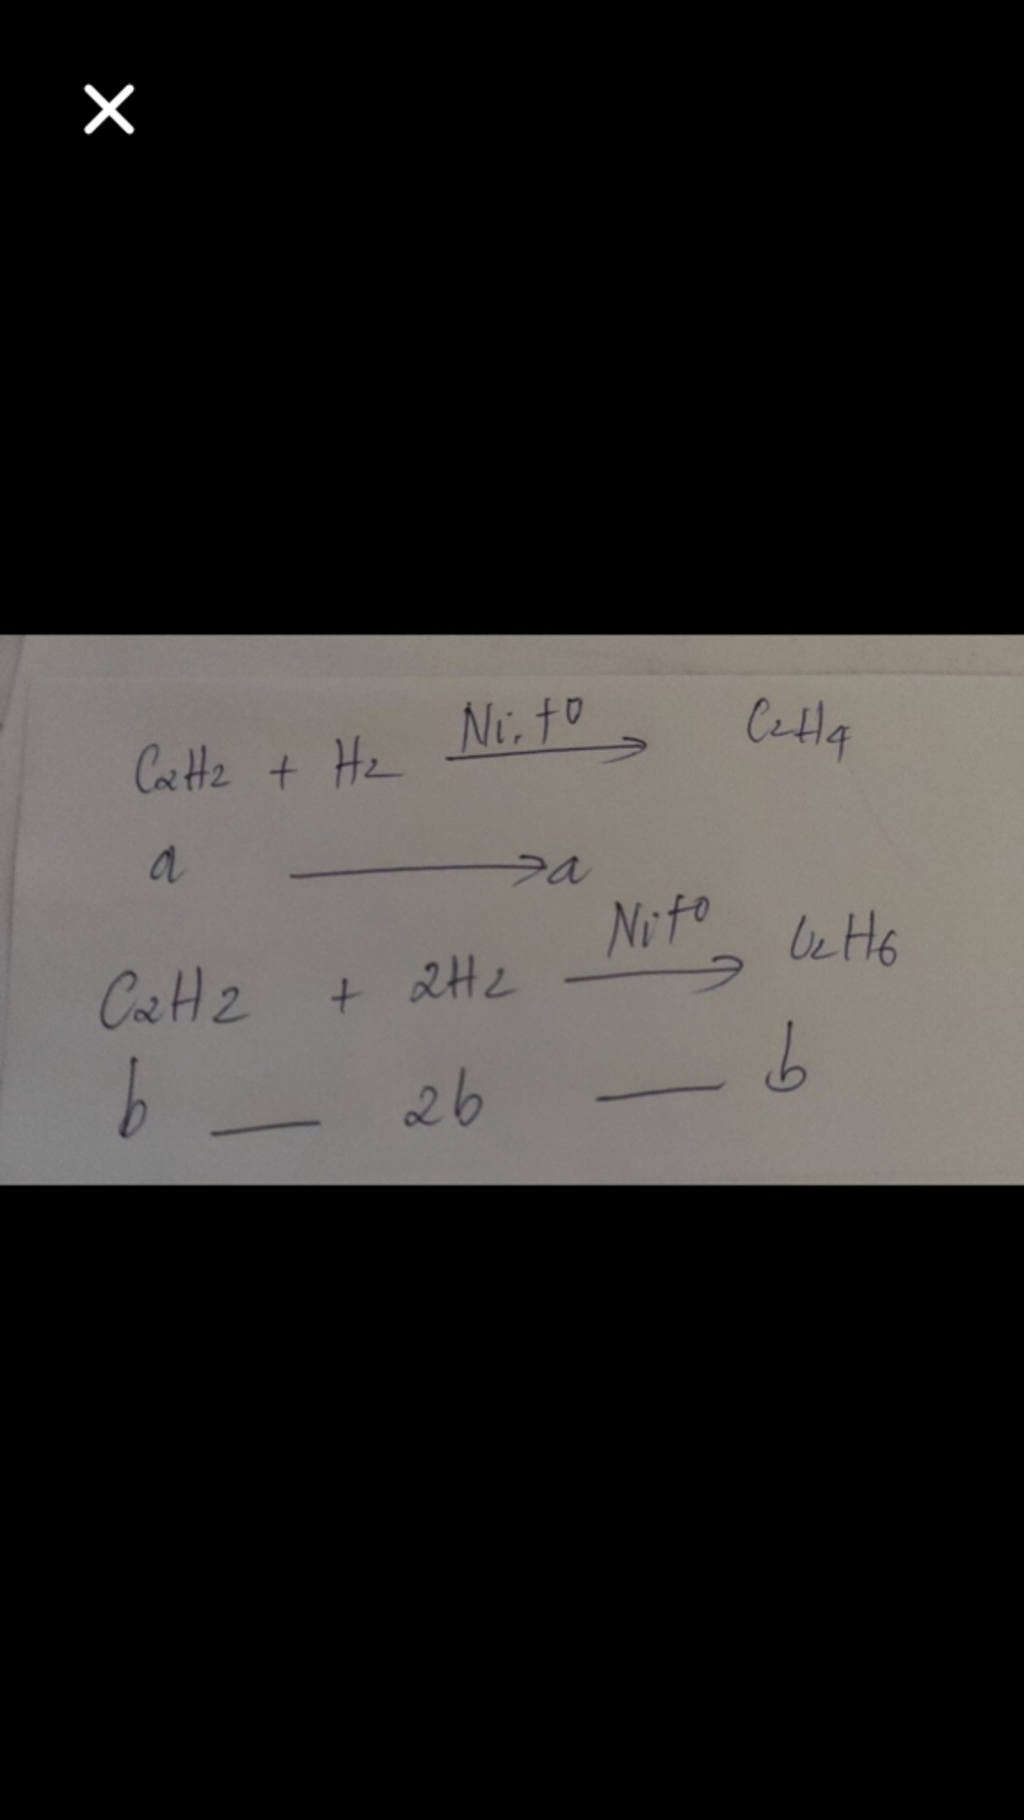 C2H2 + H2 Ni, t° → C2H4
a → a
C2H2 + 2H2 Ni t° → C2H6
b — 2b — b